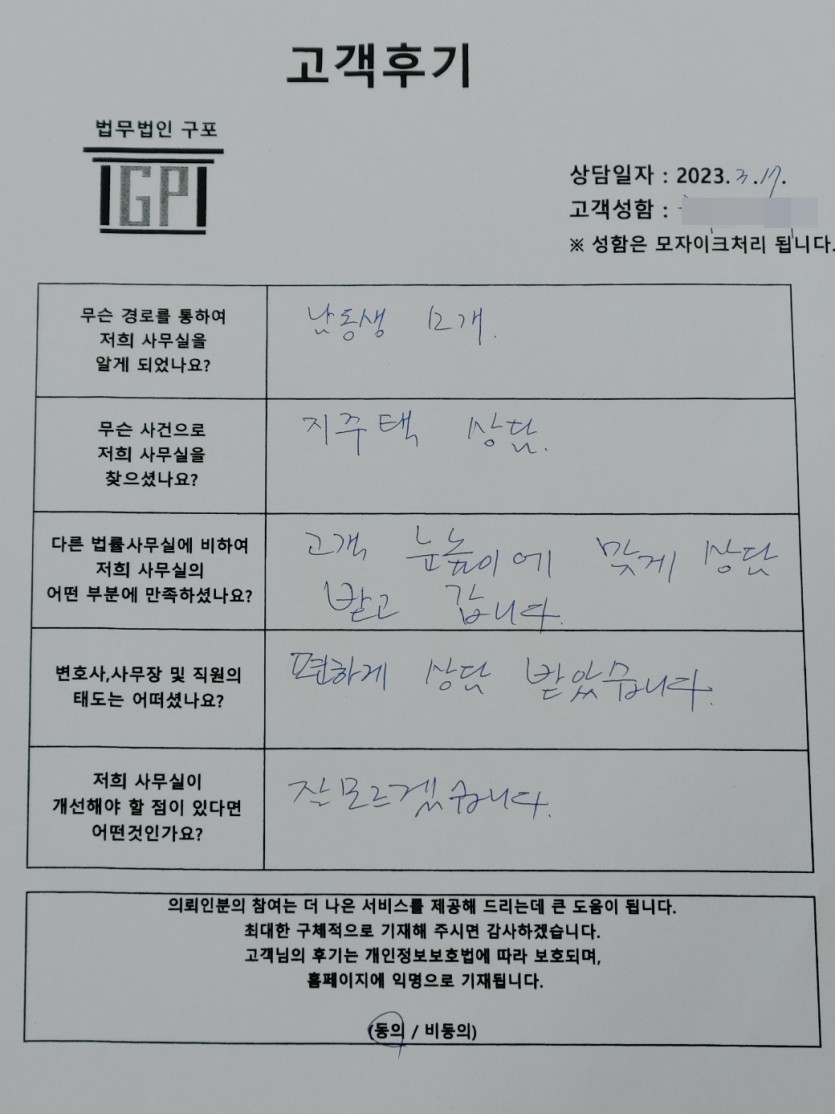 고객후기
법무법인 구포
GP
상담일자 : 2023. 3. 17.
고객성함 :
※ 성함은 모자이크처리 됩니다.
무슨 경로를 통하여
저희 사무실을
알게 되었나요?
남동생 소개.
무슨 사건으로
저희 사무실을
찾으셨나요?
지주택 상담.
다른 법률사무실에 비하여
저희 사무실의
어떤 부분에 만족하셨나요?
고객 눈높이에 맞게 상담
받고 갑니다.
변호사,사무장 및 직원의
태도는 어떠셨나요?
편하게 상담 받았습니다.
저희 사무실이
개선해야 할 점이 있다면
어떤것인가요?
잘모르겠습니다.
의뢰인분의 참여는 더 나은 서비스를 제공해 드리는데 큰 도움이 됩니다.
최대한 구체적으로 기재해 주시면 감사하겠습니다.
고객님의 후기는 개인정보보호법에 따라 보호되며,
홈페이지에 익명으로 기재됩니다.
(동의 / 비동의)